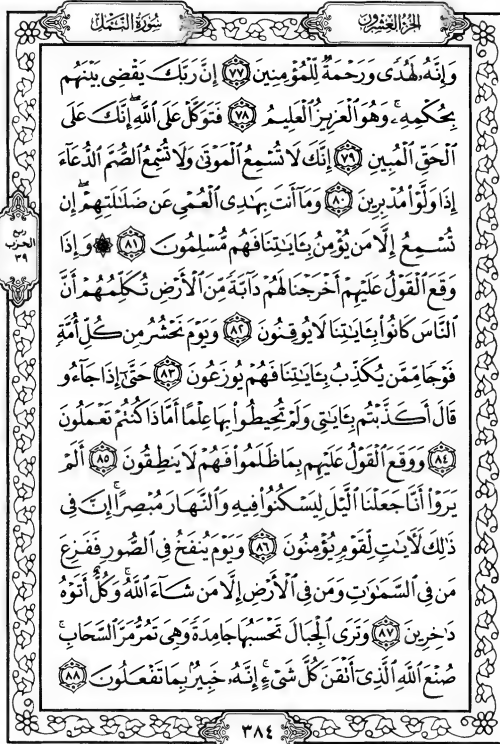 سورة النمل
الجزء العشرون
وَإِنَّهُۥ لَهُدًى وَرَحْمَةٌ لِّلْمُؤْمِنِينَ ٧٧ إِنَّ رَبَّكَ يَقْضِى بَيْنَهُم
بِحُكْمِهِۦ ۚ وَهُوَ ٱلْعَزِيزُ ٱلْعَلِيمُ ٧٨ فَتَوَكَّلْ عَلَى ٱللَّهِ ۖ إِنَّكَ عَلَى
ٱلْحَقِّ ٱلْمُبِينِ ٧٩ إِنَّكَ لَا تُسْمِعُ ٱلْمَوْتَىٰ وَلَا تُسْمِعُ ٱلصُّمَّ ٱلدُّعَآءَ
إِذَا وَلَّوْا۟ مُدْبِرِينَ ٨٠ وَمَآ أَنتَ بِهَـٰدِى ٱلْعُمْىِ عَن ضَلَـٰلَتِهِمْ ۖ إِن
تُسْمِعُ إِلَّا مَن يُؤْمِنُ بِـَٔايَـٰتِنَا فَهُم مُّسْلِمُونَ ٨١ ۞ وَإِذَا
وَقَعَ ٱلْقَوْلُ عَلَيْهِمْ أَخْرَجْنَا لَهُمْ دَآبَّةً مِّنَ ٱلْأَرْضِ تُكَلِّمُهُمْ أَنَّ
ٱلنَّاسَ كَانُوا۟ بِـَٔايَـٰتِنَا لَا يُوقِنُونَ ٨٢ وَيَوْمَ نَحْشُرُ مِن كُلِّ أُمَّةٍ
فَوْجًا مِّمَّن يُكَذِّبُ بِـَٔايَـٰتِنَا فَهُمْ يُوزَعُونَ ٨٣ حَتَّىٰٓ إِذَا جَآءُو
قَالَ أَكَذَّبْتُم بِـَٔايَـٰتِى وَلَمْ تُحِيطُوا۟ بِهَا عِلْمًا أَمَّاذَا كُنتُمْ تَعْمَلُونَ
٨٤ وَوَقَعَ ٱلْقَوْلُ عَلَيْهِم بِمَا ظَلَمُوا۟ فَهُمْ لَا يَنطِقُونَ ٨٥ أَلَمْ
يَرَوْا۟ أَنَّا جَعَلْنَا ٱلَّيْلَ لِيَسْكُنُوا۟ فِيهِ وَٱلنَّهَارَ مُبْصِرًا ۚ إِنَّ فِى
ذَٰلِكَ لَـَٔايَـٰتٍ لِّقَوْمٍ يُؤْمِنُونَ ٨٦ وَيَوْمَ يُنفَخُ فِى ٱلصُّورِ فَفَزِعَ
مَن فِى ٱلسَّمَـٰوَٰتِ وَمَن فِى ٱلْأَرْضِ إِلَّا مَن شَآءَ ٱللَّهُ ۚ وَكُلٌّ أَتَوْهُ
دَٰخِرِينَ ٨٧ وَتَرَى ٱلْجِبَالَ تَحْسَبُهَا جَامِدَةً وَهِىَ تَمُرُّ مَرَّ ٱلسَّحَابِ ۚ
صُنْعَ ٱللَّهِ ٱلَّذِىٓ أَتْقَنَ كُلَّ شَىْءٍ ۚ إِنَّهُۥ خَبِيرٌۢ بِمَا تَفْعَلُونَ ٨٨
ربع
الحزب
٣٩
٣٨٤